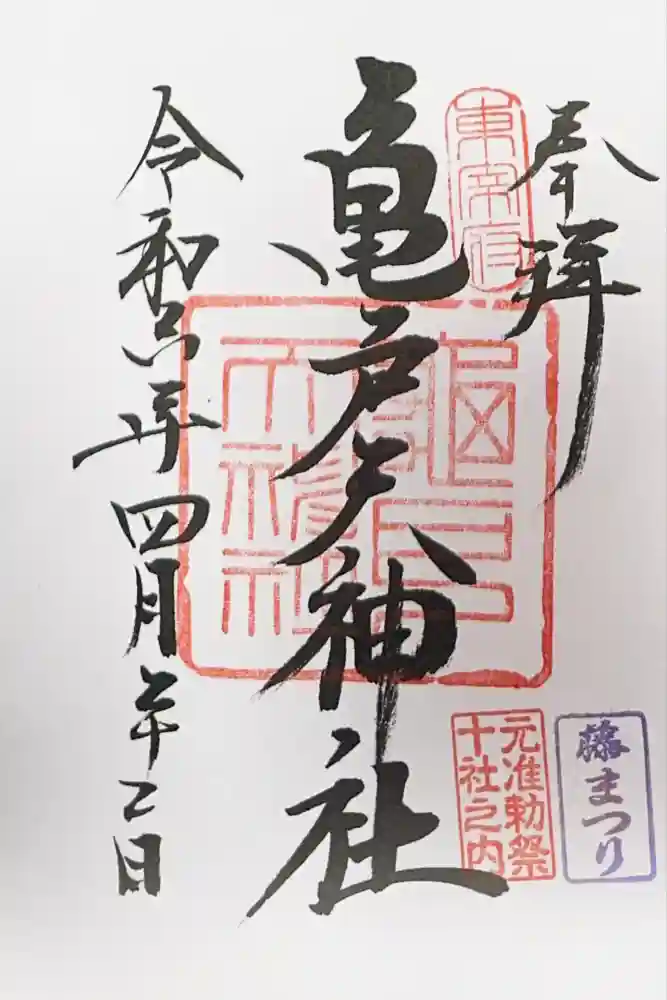 奉拝
東宰府
亀戸天神社
令和六年四月二十二日
元准勅祭
十社之内
藤まつり